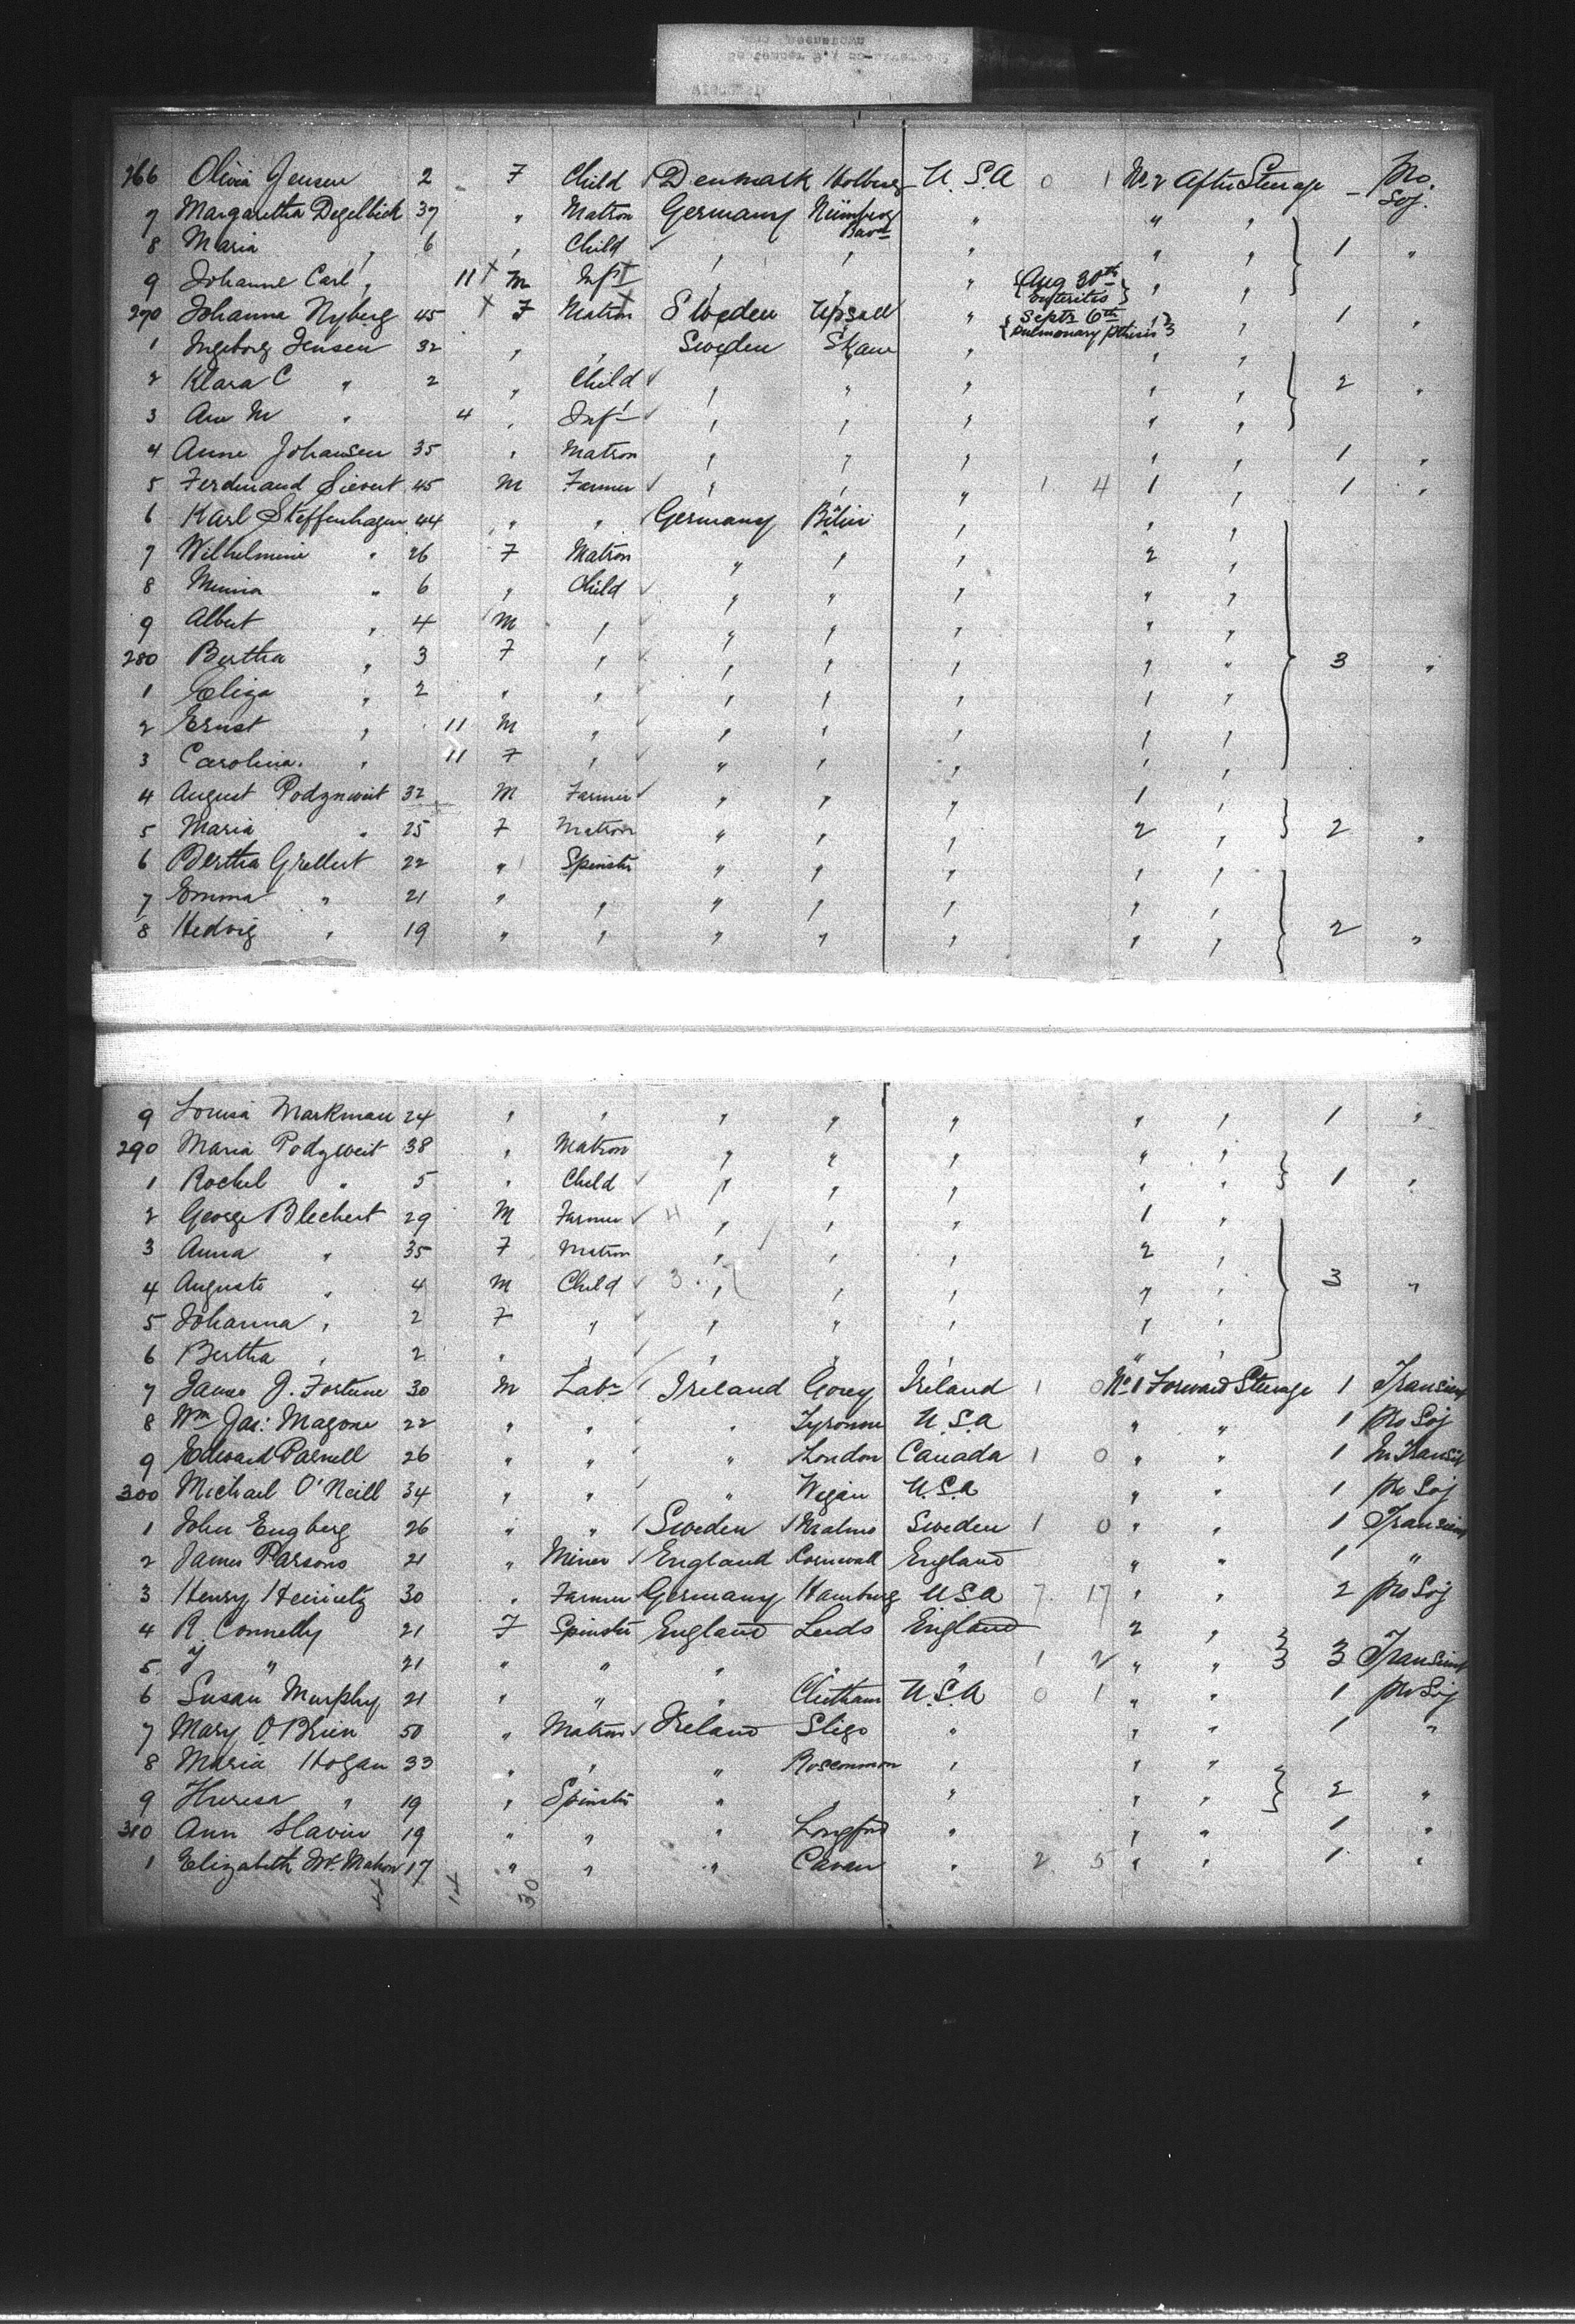 266 Olivia Jensen 2 F Child Denmark Holberg U.S.A 0 1 No 2 After Steerage - Pro. Soj.
7 Margaretha Degelbick 37 " Matron Germany Nürnberg Bava " " "
8 Maria " 6 " Child " " " " " 1 "
9 Johanne Carl " 11 M Inft " " " Aug 30th Enteritis " "
270 Johanna Nyberg 45 F Matron Sweden Upsall " Septr 6th Pulmonary pthisis " 1 "
1 Ingeborg Jensen 32 " " Sweden Skane " " "
2 Klara C " 2 " Child " " " " " 2 "
3 Ane M " 4 " Inft " " " " "
4 Anne Johansen 35 " Matron " " " " " 1 "
5 Ferdinand Sievert 45 M Farmer " " " 1 4 1 " 1 "
6 Karl Steffenhagen 44 " " Germany " " "
7 Wilhelmine " 26 F Matron " " " 2 "
8 Minna " 6 " Child " " " " "
9 Albert " 4 M " " " " " "
280 Bertha " 3 F " " " " " " 3 "
1 Eliza " 2 " " " " " " "
2 Ernst " 11 M " " " " " "
3 Carolina " 11 F " " " " " "
4 August Podznweit 32 M Farmer " " " 1 "
5 Maria " 25 F Matron " " " 2 " 2 "
6 Bertha Grellert 22 " Spinstr " " " " "
7 Emma " 21 " " " " " " "
8 Hedvig " 19 " " " " " " " 2 "
9 Louisa Markman 24 " " " " " " " 1 "
290 Maria Podzweit 38 " Matron " " " " "
1 Rochel " 5 " Child " " " " " 1 "
2 George Blechert 29 M Farmer " " " 1 "
3 Anna " 35 F Matron " " " 2 "
4 Auguste " 4 M Child 3 " " " " " 3 "
5 Johanna " 2 F " " " " " "
6 Bertha " 2 " " " " " "
7 James J. Fortune 30 M Labr Ireland Gorey Ireland 1 0 No 1 Forward Steerage 1 Transient
8 Wm Jas: Magone 22 " " " Tyronne U.S.A " " 1 Pro Soj
9 Edward Parnell 26 " " " London Canada 1 0 " " 1 In Transit
300 Michael O'Neill 34 " " " Wigan U.S.A " " 1 Pro Soj
1 John Engberg 26 " " Sweden Malmo Sweden 1 0 " " 1 Transient
2 James Parsons 21 " Miner England Cornwall England " " 1 "
3 Henry Heinietz 30 " Farmer Germany Hamburg U.S.A 7 17 " " 2 Pro Soj
4 R. Connelly 21 F Spinstr England Leeds England 2 "
5 Y " 21 " " " " " 1 2 " " 3 Transient
6 Susan Murphy 21 " " " Cheetham U.S.A 0 1 " " 1 Pro Soj
7 Mary O'Brien 50 " Matron Ireland Sligo " " " 1 "
8 Maria Hogan 33 " " " Roscommon " " "
9 Theresa " 19 " Spinstr " " " " " 2 "
310 Ann Slavin 19 " " " Longford " " " 1 "
1 Elizabeth Mc.Mahon 17 " " " Cavan " 2 5 " " 1 "
14 30